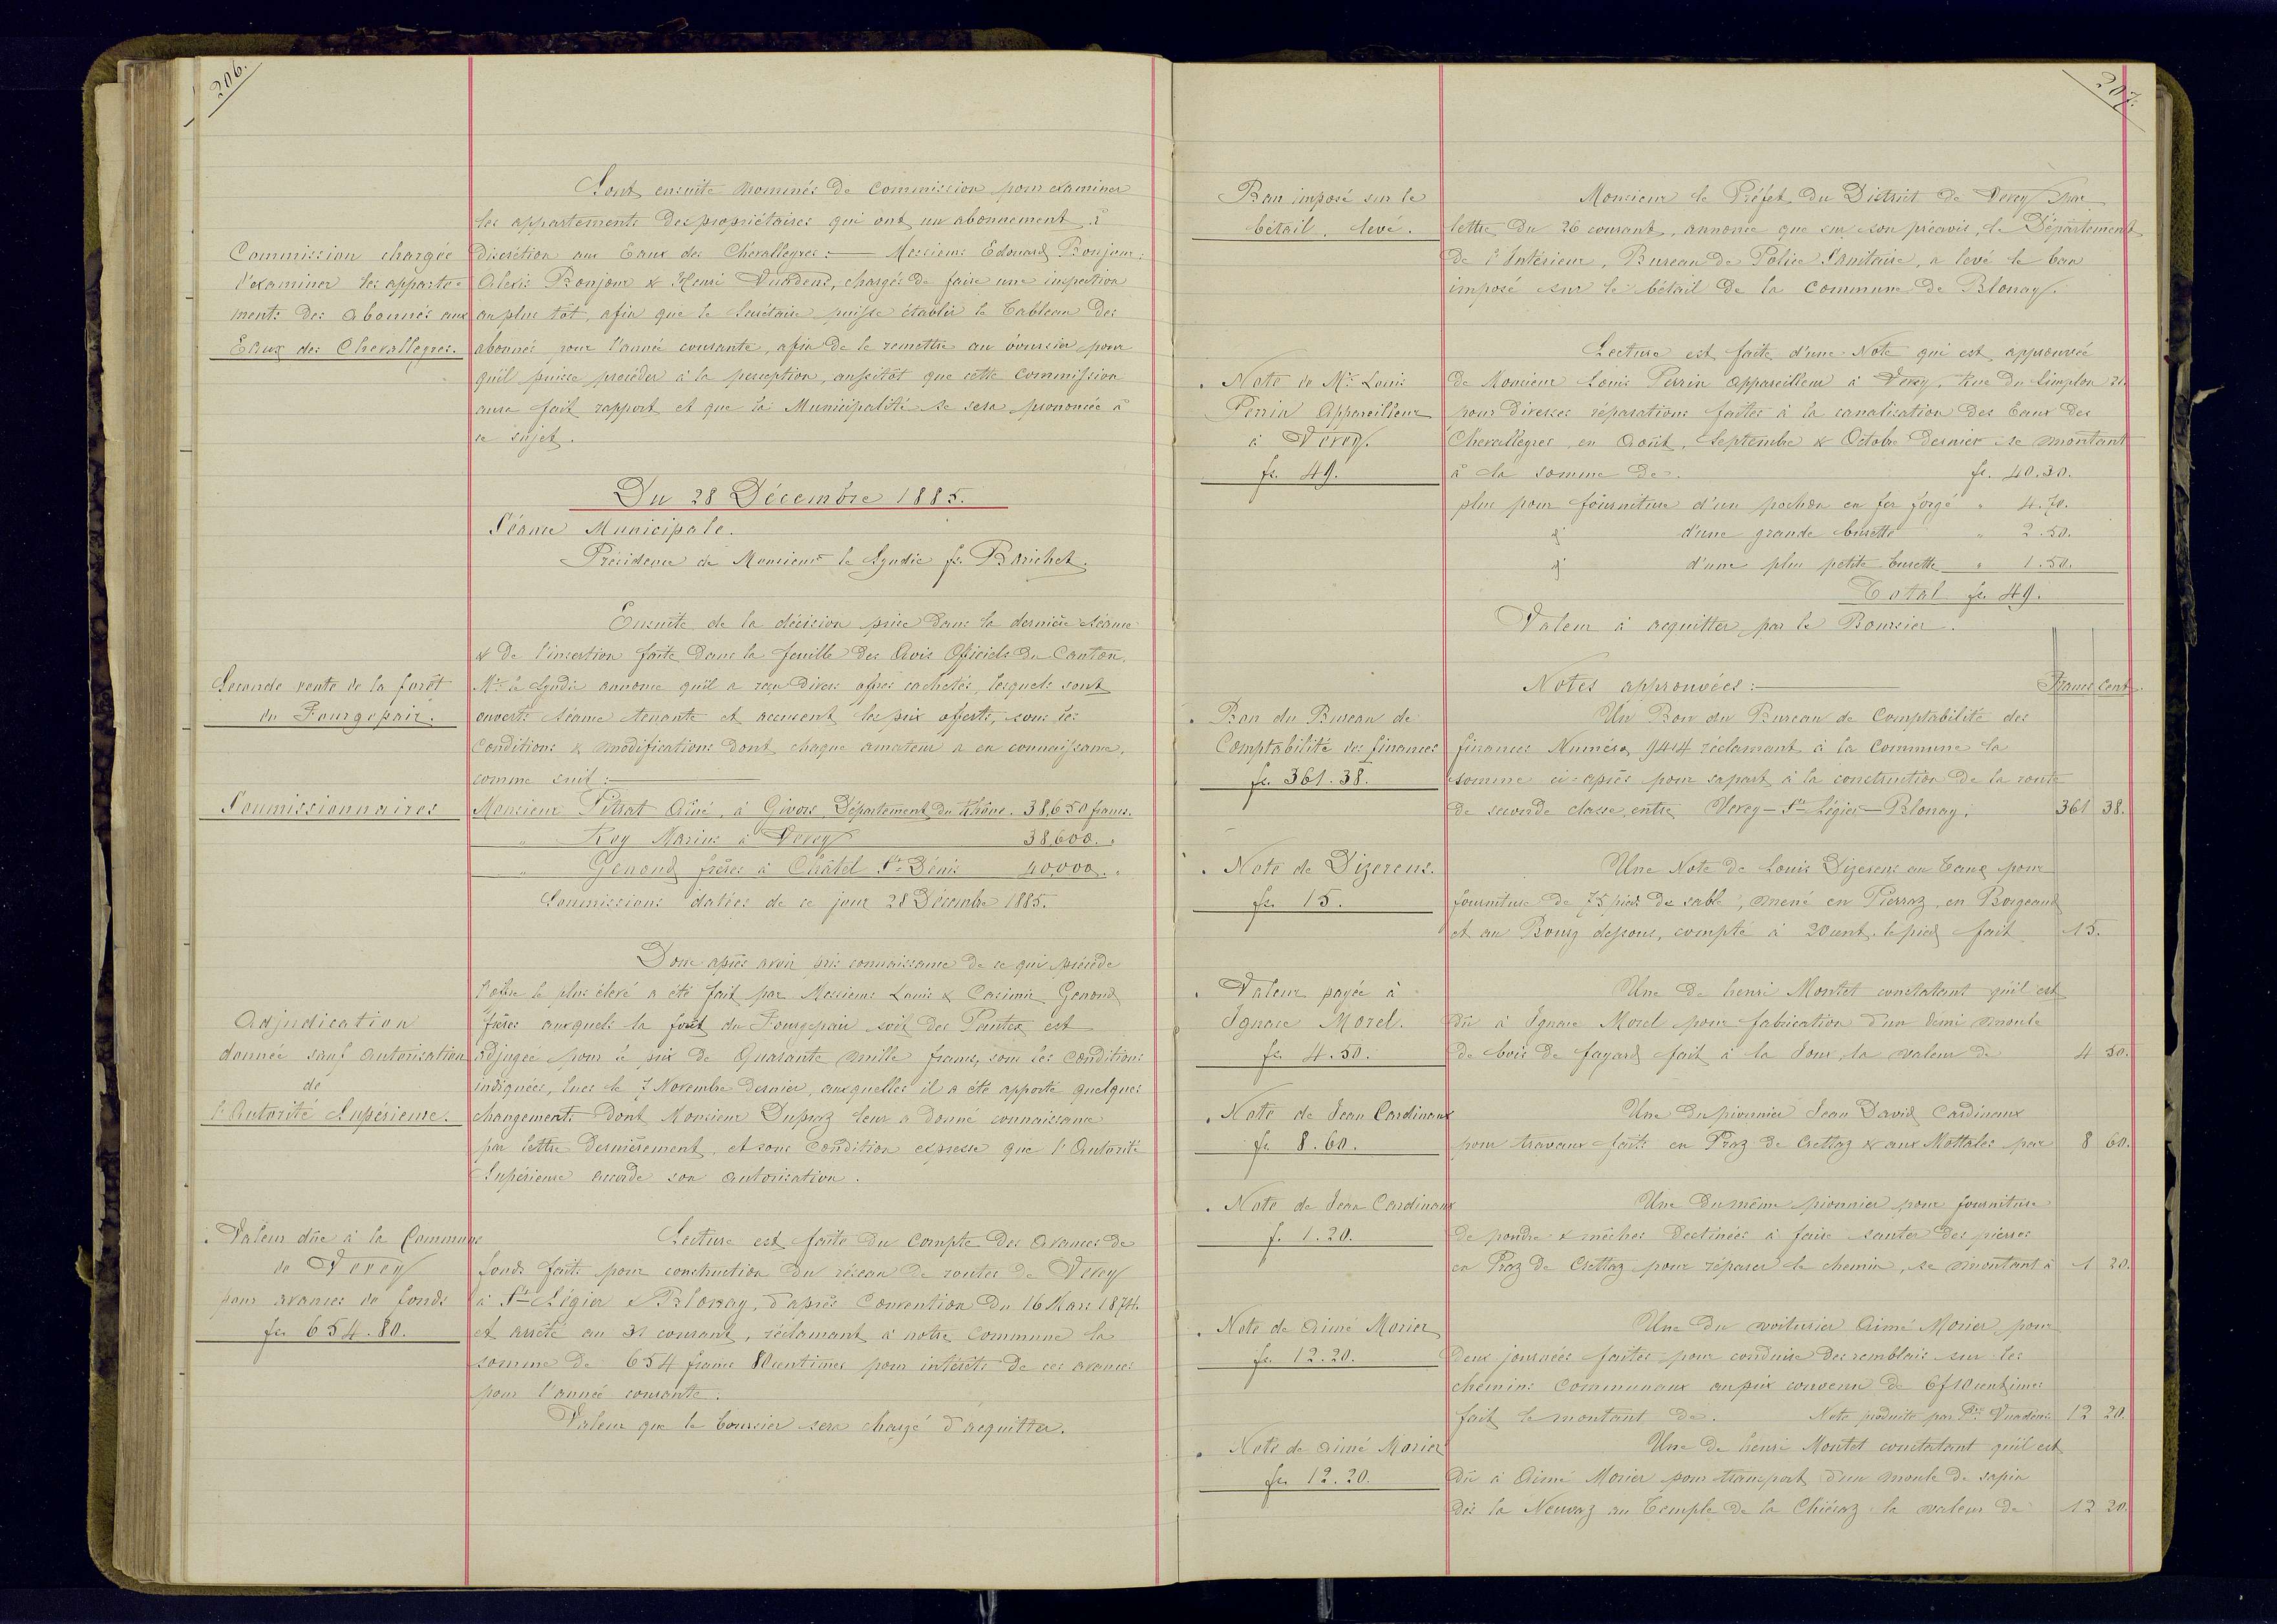 206.
Sont ensuite nommés de Commission pour examiner
les appartements des propriétaires qui ont un abonnement à
Commission chargée
discrétion aux Eaux des Chevalleyres : — Messieurs Edouard Bonjour :
d'examiner les apparte=
Alexis Bonjour & Henri Vuadens, chargés de faire une inspection
ments des Abonnés aux
au plus tôt, afin que le Secrétaire puisse établir le Tableau des
Eaux des Chevalleyres.
abonnés pour l'année courante, afin de le remettre au boursier pour
qu'il puisse procéder à la perception, aussitôt que cette Commission
aura fait rapport et que la Municipalité se sera prononcée à
ce sujet.
Du 28 Décembre 1885.
Séance Municipale.
Présidence de Monsieur le Syndic fs. Barichet.
Ensuite de la décision prise dans la dernière séance
& de l'insertion faite dans la feuille des Avis Officiels du Canton,
Seconde vente de la forêt
Mr. le Syndic annonce qu'il a reçu divers offres cachetés, lesquels sont
du Fourgepair.
ouverts séance tenante et accusent les prix offerts, sous les
Conditions & modifications dont chaque amateur a eu connaissance,
comme suit : —
Soumissionnaires
Monsieur Pitrat Aîné, à Givors, Département du Rhône. 38,650 francs.
" Rey Marius à Vevey 38,600. "
" Genoud frères à Châtel St Dénis 40,000. "
Soumissions datées de ce jour 28 Décembre 1885.
Donc après avoir pris connaissance de ce qui précède
l'offre le plus élevé a été fait par Messieurs Louis & Casimir Genoud
Adjudication
frères auxquels la forêt du Fourgepair soit des Pautex est
donnée sauf Autorisation
adjugée pour le prix de Quarante mille francs, sous les Conditions
de
indiquées, lues le 7 Novembre dernier, auxquelles il a été apporté quelques
l'Autorité Supérieure.
changements dont Monsieur Dupraz leur a donné connaissance
par lettre dernièrement, et sous Condition expresse que l'Autorité
Supérieure accorde son autorisation.
Valeur dûe à la Commune
Lecture est faite du Compte des Avances de
de Vevey
fonds faits pour construction du réseau de routes de Vevey
pour avances de fonds
à St Légier & Blonay, d'après Convention du 16 Mars 1874.
fs. 654.80.
et arrêté au 31 courant, réclamant à notre Commune la
somme de 654 francs 80 centimes pour intérêts de ces avances
pour l'année courante.
Valeur que le boursier sera chargé d'acquitter.
207.
Ban imposé sur le
Monsieur le Préfet du District de Vevey par
bétail, levé.
lettre du 26 courant, annonce que sur son préavis, le Département
de l'Intérieur, Bureau de Police Sanitaire, a levé le ban
imposé sur le bétail de la Commune de Blonay.
Lecture est faite d'une Note qui est approuvée
Note de Mr. Louis
de Monsieur Louis Perrin Appareilleur à Vevey, Rue du Simplon 21.
Perrin Appareilleur
pour diverses réparations faites à la canalisation des Eaux des
à Vevey.
Chevalleyres, en Août, Septembre & Octobre dernier se montant
fs. 49.
à la somme de fs. 40.30.
plus pour fourniture d'un pochon en fer forgé " 4.70.
d° d'une grande burette " 2.50.
d° d'une plus petite burette " 1.50.
Total fs. 49.
Valeur à acquitter par le Boursier.
Notes approuvées : — Francs Cent.
Bon du Bureau de
Un Bon du Bureau de Comptabilité des
Comptabilité des finances
finances Numéro 944 réclamant à la Commune la
fs. 361.38.
somme ci-après pour sa part à la construction de la route
de seconde classe, entre Vevey — St Légier — Blonay. 361 38.
Note de Dizerens.
Une Note de Louis Dizerens au Taux pour
fs. 15.
fourniture de 75 pieds de sable, mené en Pierraz, en Borgeaud
et au Bourg dessous, compté à 20 cent. le pied fait 15.
Valeur payée à
Une de henri Montet constatant qu'il est
Ignace Morel.
dû à Ignace Morel pour fabrication d'un demi moule
fs. 4.50.
de bois de fayard fait à la Tour, la valeur de 4 50.
Note de Jean Cardinaux
Une du pionnier Jean David Cardinaux
fs. 8.60.
pour travaux faits en Praz de Crettaz & aux Mottales par 8 60.
Note de Jean Cardinaux
Une du même pionnier pour fourniture
f. 1.20.
de poudre & mèches destinées à faire sauter des pierres
en Praz de Crettaz pour réparer le chemin, se montant à 1 20.
Note de Aimé Morier
Une du voiturier Aimé Morier pour
fs. 12.20.
deux journées faites pour conduire des remblais sur les
chemins Communaux au prix convenu de 6 f 10 centimes
fait le montant de. Note produite par Vuadens 12 20.
Note de Aimé Morier
Une de henri Montet constatant qu'il est
fs. 12.20.
dû à Aimé Morier pour transport d'un moule de sapin
dès la Neuvaz au Temple de la Chiésaz la valeur de 12 20.